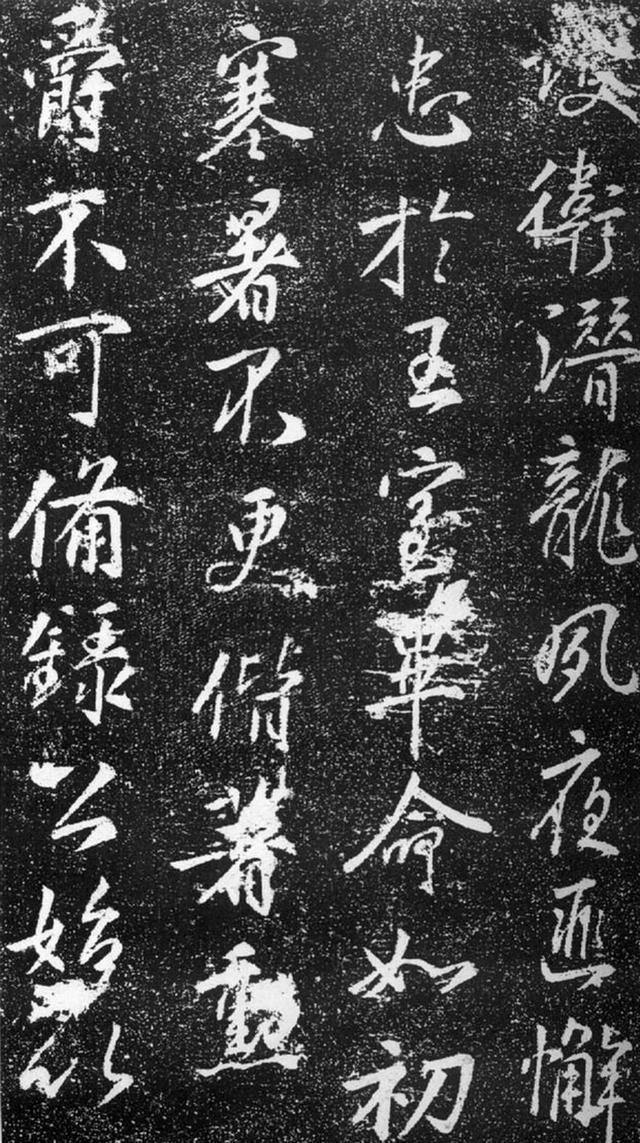 衛潛龍夙夜匪懈
忠於王室畢命如初
寒暑不更偕著勳
爵不可備錄公始以